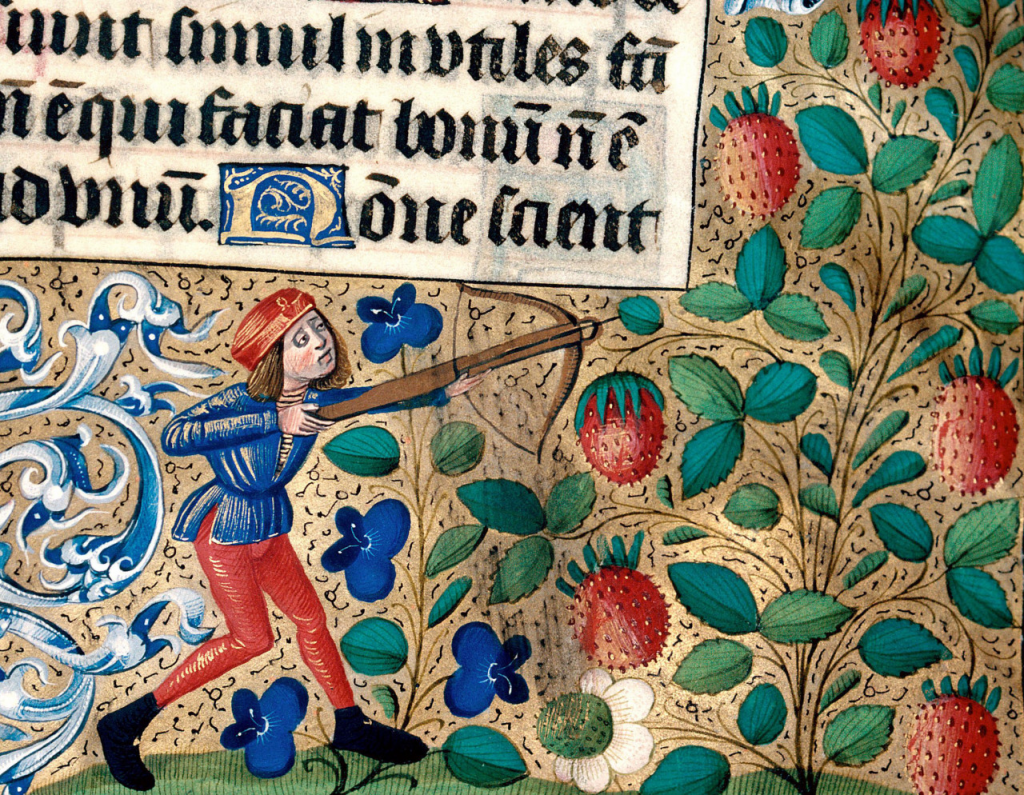 unt simul invtiles fcī
n̄ ē qui faciat bonū n̄ ē
ad vnū. Nōne scient